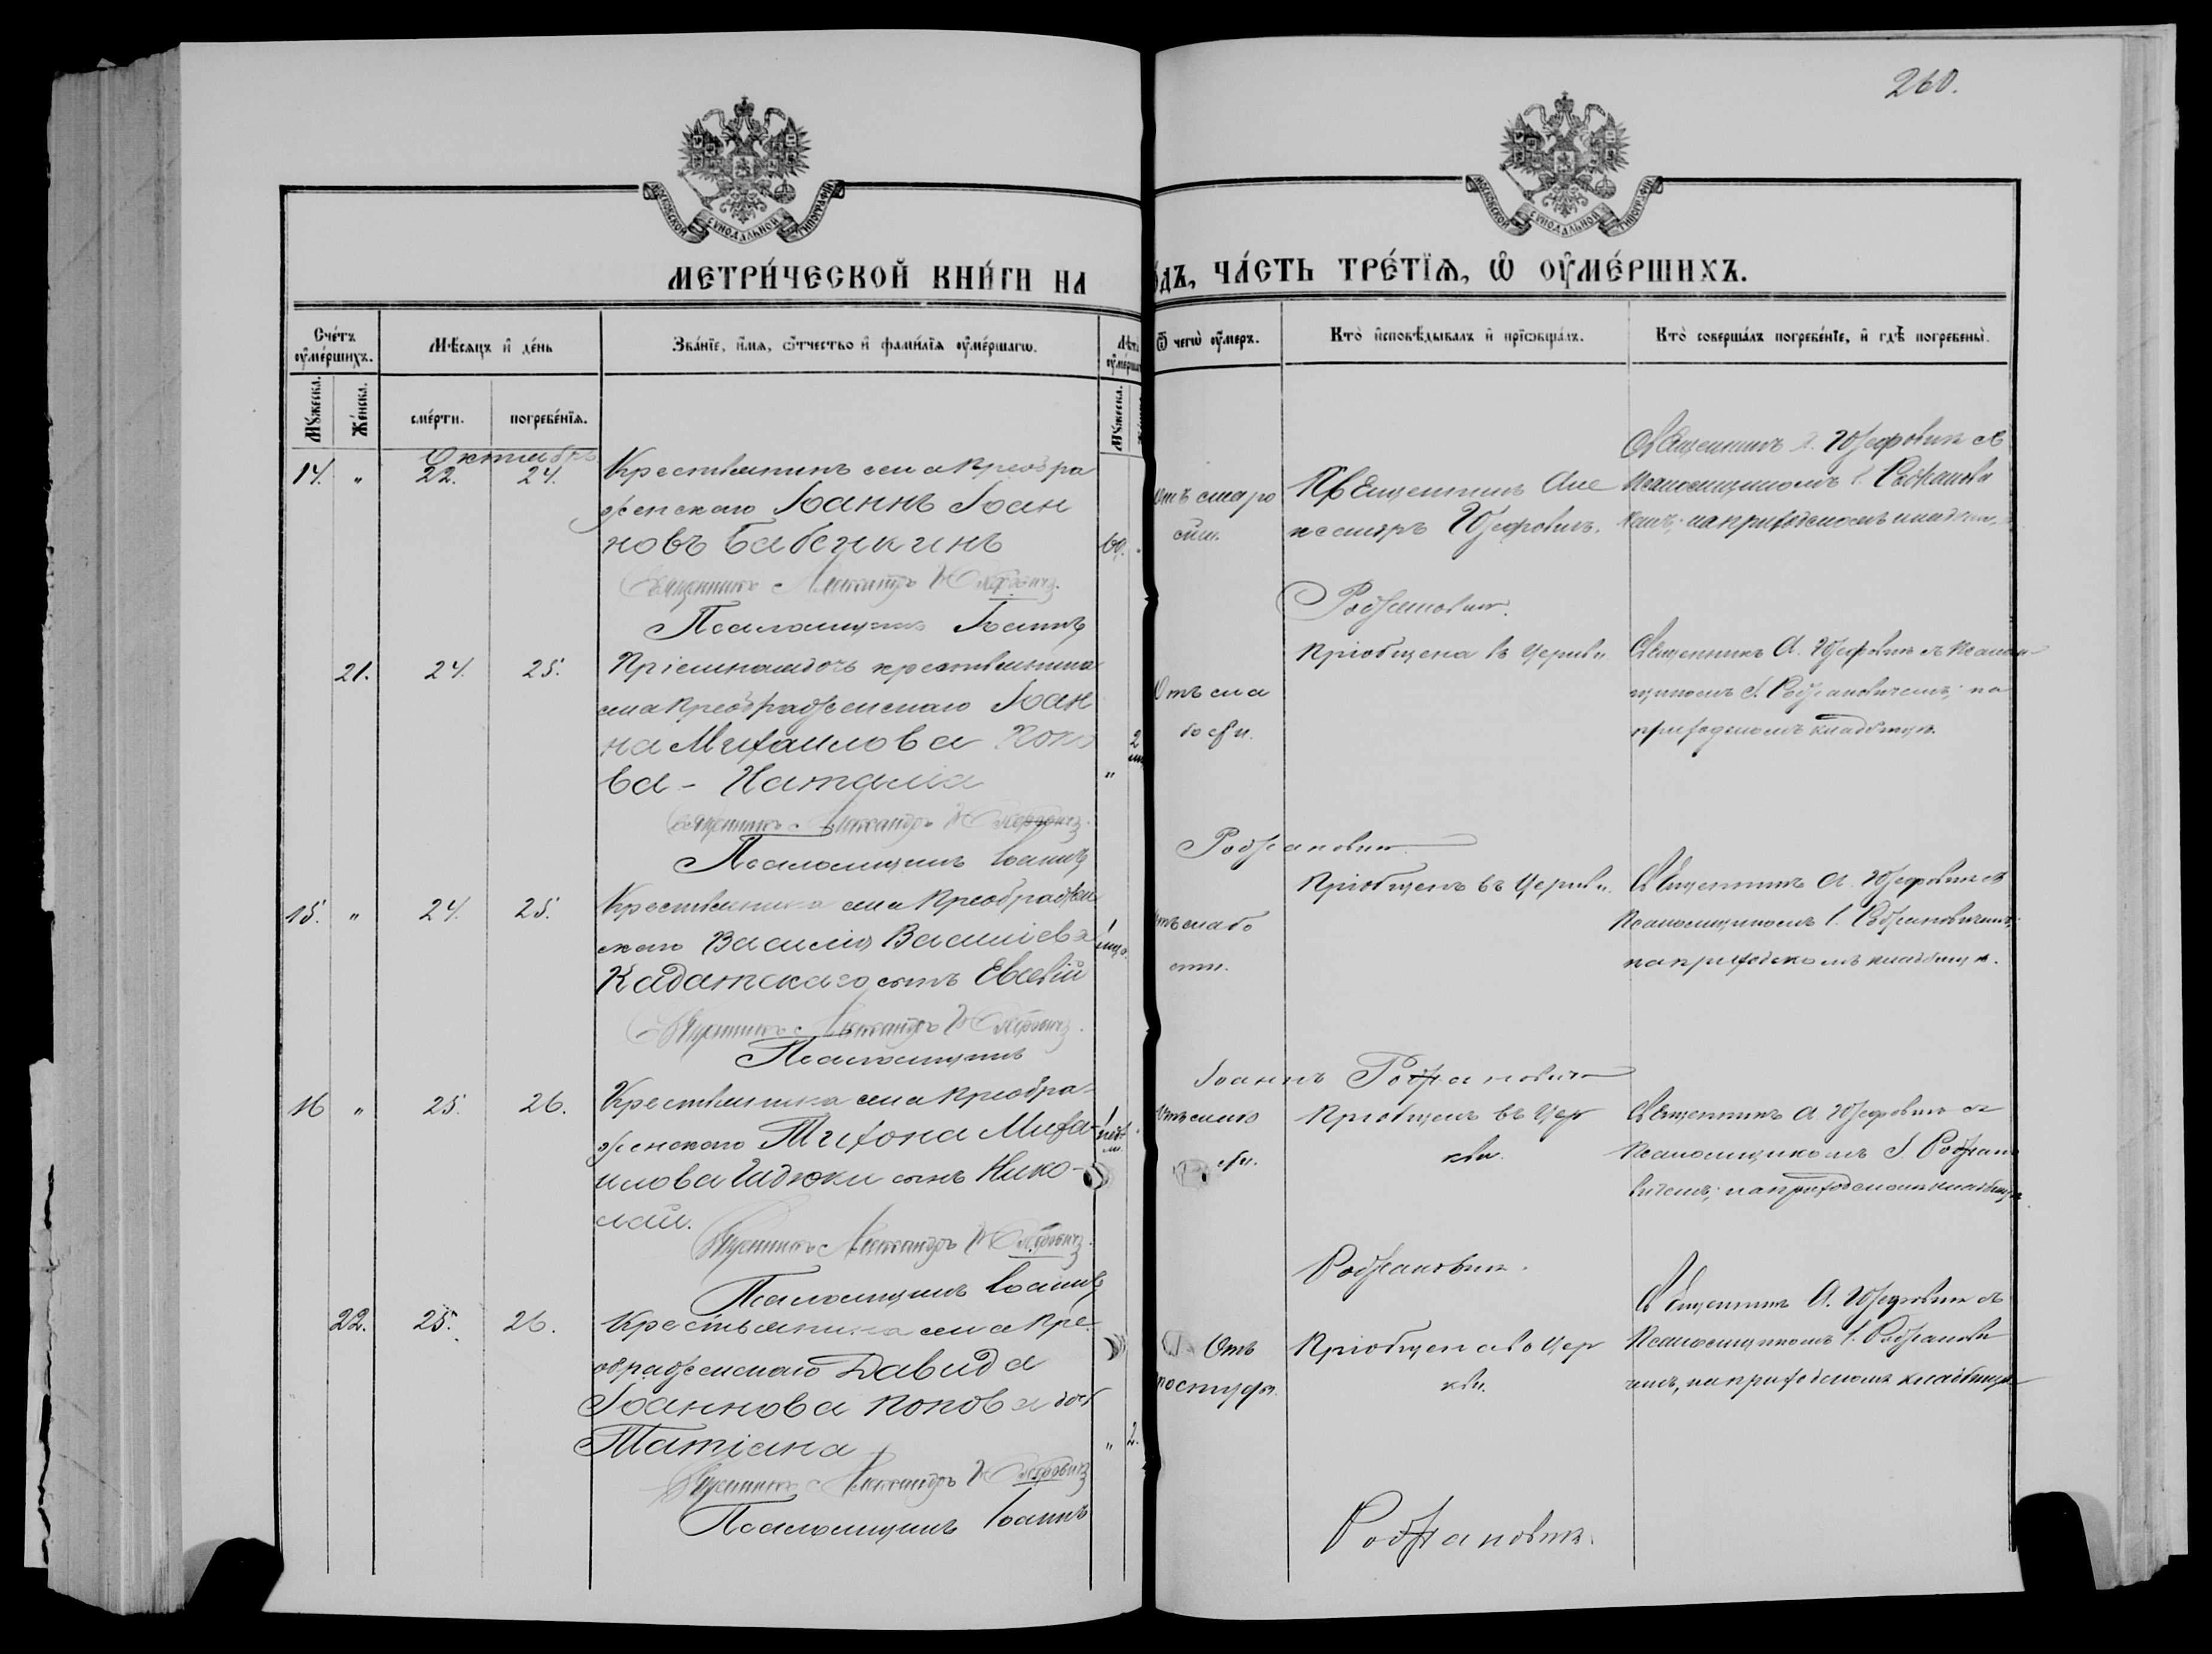 260.
МОСКОВСКОЙ СѴНОДАЛЬНОЙ ТИПОГРАФІИ
МОСКОВСКОЙ СѴНОДАЛЬНОЙ ТИПОГРАФІИ
МЕТРИ́ЧЕСКОЙ КНИ́ГИ НА
ДЪ, ЧА́СТЬ ТРЕ́ТЇѦ, Ѡ҆ ОУ҆МЕ́РШИХЪ.
Сче́тъ оу҆ме́ршихъ.
Мꙋ́жеска.
Же́нска.
Мѣ́сѧцъ и҆ де́нь
сме́рти.
погребе́нїѧ.
Зва́нїе, и҆́мѧ, ѻ҆́тчество и҆ фами́лїѧ оу҆ме́ршагѡ.
Мꙋ́жеска.
Ѿ чегѡ̀ оу҆́меръ.
Кто̀ и҆сповѣ́дывалъ и҆ прїѡбща́лъ.
Кто̀ соверша́лъ погребе́нїе, и҆ гдѣ̀ погребены̀.
Октябрь
14. " 22. 24. Крестьянинъ села Преобра
женскаго Іоаннъ Іоан
новъ Бабенкинъ 60.
Священникъ Александръ Юзефовичъ.
Псаломщикъ Іоаннъ
Отъ старо
сти.
Священникъ Але
ксандръ Юзефовичъ.
Родзановичъ.
Священникъ А. Юзефовичъ съ
Псаломщикомъ І. Родзанови
чемъ; на приходскомъ кладби
21. 24. 25. Пріемная дочь крестьянина
села Преображенскаго Іоан
на Михаилова Попо
ва - Наталія " 2
Священникъ Александръ Юзефовичъ.
Псаломщикъ Іоаннъ
Отъ сла
бости.
Родзановичъ
Пріобщена въ Церкви.
Священникъ А. Юзефовичъ съ Псалом
щикомъ І. Родзановичемъ; на
приходскомъ кладбищѣ.
15. " 24. 25. Крестьянина села Преображен
скаго Василія Васильева
Кадатскаго сынъ Евсевій
Священникъ Александръ Юзефовичъ.
Псаломщикъ
Отъ слабо
сти.
Іоаннъ Родзановичъ
Пріобщенъ въ Церкви.
Священникъ А. Юзефовичъ съ
Псаломщикомъ І. Родзановичемъ;
на приходскомъ кладбищѣ.
16 " 25. 26. Крестьянина села Преобра-
женскаго Тихона Миха-
илова Гадюки сынъ Нико-
лай.
Священникъ Александръ Юзефовичъ.
Псаломщикъ Іоаннъ
Отъ слабо
сти.
Пріобщенъ въ Цер
кви.
Родзановичъ.
Священникъ А. Юзефовичъ съ
Псаломщикомъ І. Родзано
вичемъ; на приходскомъ кладбищѣ
22. 25. 26. Крестьянина села Пре
ображенскаго Давида
Іоаннова Попова дочь
Татіана " 2.
Священникъ Александръ Юзефовичъ
Псаломщикъ Іоаннъ
Отъ
простуды.
Пріобщена въ Цер
кви.
Родзановичъ.
Священникъ А. Юзефовичъ съ
Псаломщикомъ І. Родзанови
чемъ, на приходскомъ кладбищѣ